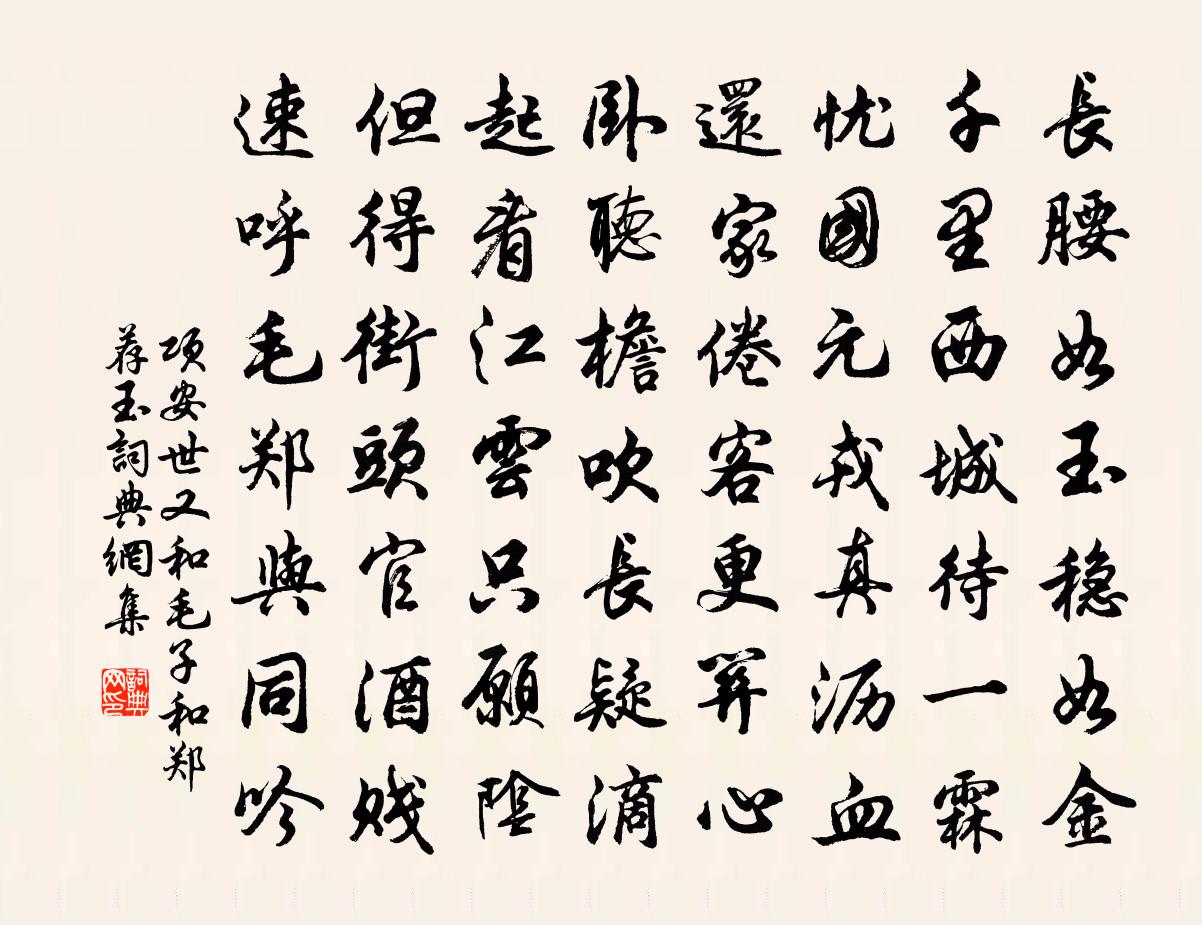 長腰如玉稳如金
千里西城待一霖
忧國元戎真沥血
還家倦客更關心
卧聽檐吹長疑滴
起看江雲只願陰
但得街頭官酒賤
速呼毛郑與同吟
项安世又和毛子和郑
荐玉詞典網集
詞典网印